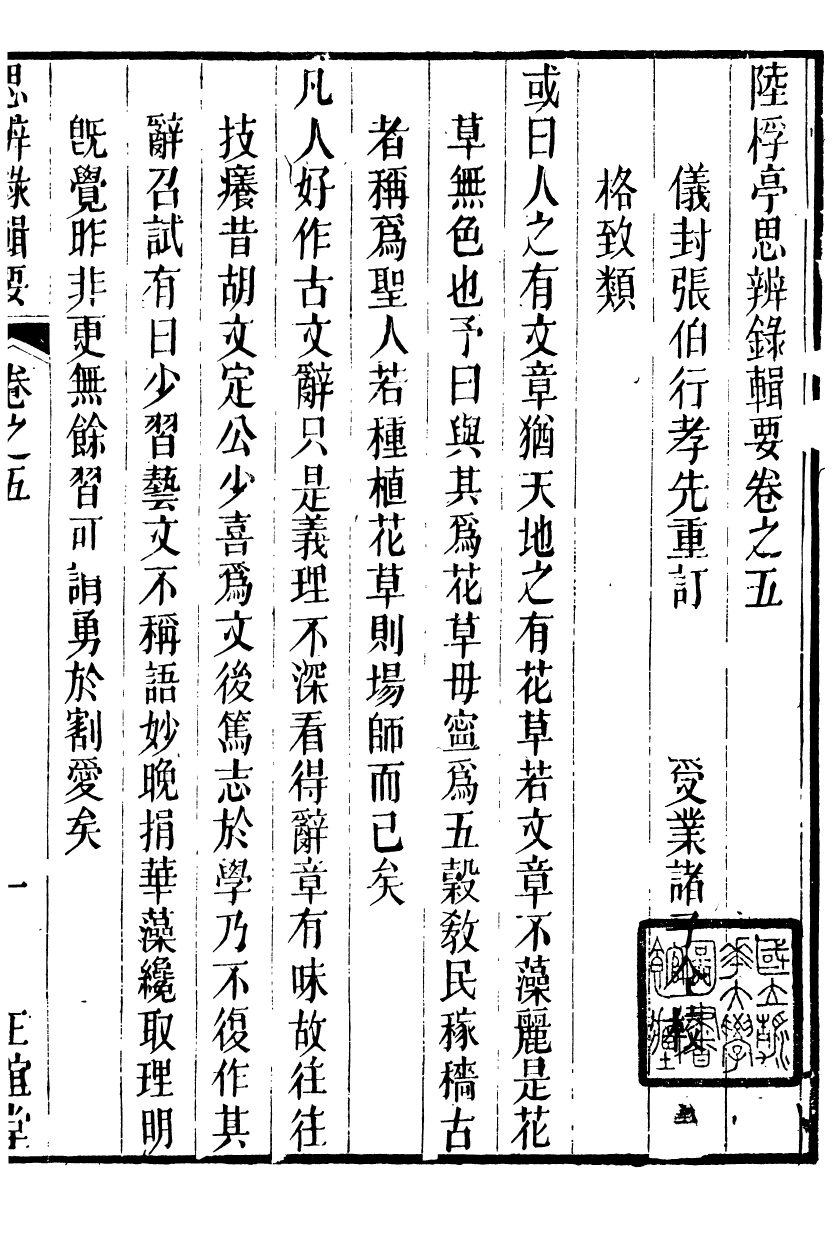 陸桴亭思辨錄輯要卷之五
儀封張伯行孝先重訂　受業諸子仝校
格致類
或曰人之有文章猶天地之有花草若文章不藻麗是花
草無色也予曰與其爲花草毋寍爲五穀敎民稼穡古
者稱爲聖人若種植花草則場師而已矣
凡人好作古文辭只是義理不深看得辭章有味故往往
技癢昔胡文定公少喜爲文後篤志於學乃不復作其
辭召試有曰少習藝文不稱語妙晚捐華藻纔取理明
旣覺昨非更無餘習可謂勇於割愛矣
思辨錄輯要　卷之五　一　正誼堂
國立
大學
圖書